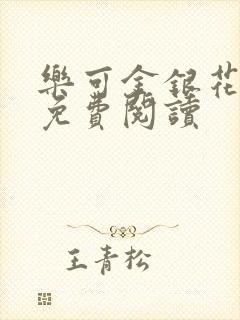 樂可金銀花
免費閱讀
王青松